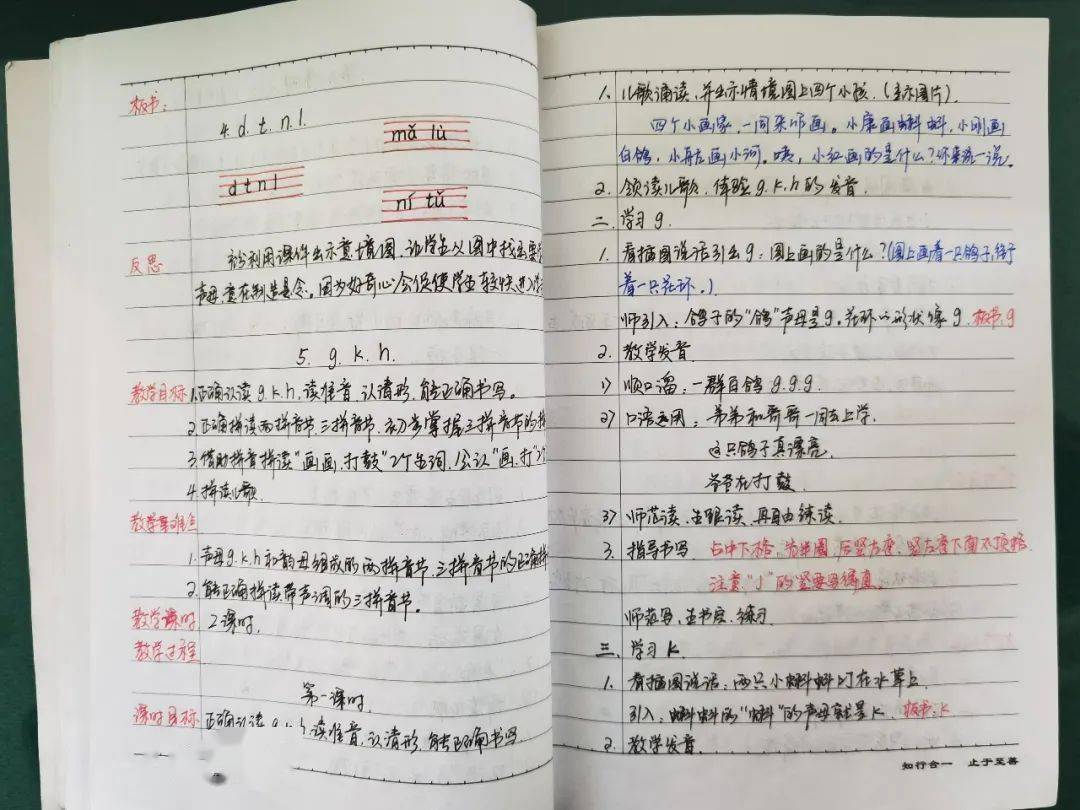 板书:
4. d. t. n. l.
mǎ lù
d t n l
ní tǔ
反思
充分利用课件出示意境图,让学生从图中找出要
声母,意在制造悬念。因为好奇心会促使学生较快进入
5. g. k. h.
教学目标 1.正确认读 g. k. h, 读准音,认清形,能正确书写。
2.正确拼读两拼音节、三拼音节,初步掌握三拼音节的拼
3.借助拼音拼读"画画,打鼓"2个生词,会认"画、打"2个
4.拼读儿歌
教学重难点
1.声母g. k. h和韵母组成的两拼音节、三拼音节的正确拼
2.能正确拼读带声调的三拼音节。
教学课时 2课时,
教学过程
第一课时,
课时目标 正确认读 读准音,认清形,能正确书写
1. 儿歌诵读,并出示情境图上四个小孩.(出示图片).
四个小画家,一同来作画。小康画蝌蚪,小刚画
白鸽,小 画小河。咦,小红画的是什么?你来说一说。
2. 领读儿歌,体验g. k. h的发音.
二. 学习 g.
1. 看插图说话引出g:图上画的是什么?(图上画着一只鸽子,衔
着一只花环。)
师引入:鸽子的"鸽"声母是g。花环的形状像g. 板书:g
2. 教学发音
1) 顺口溜:一群白鸽 g. g. g.
2) 口语运用:弟弟和哥哥一同去上学.
这只鸽子真漂亮.
爷爷在打鼓.
3) 师范读,生跟读,再自由练读.
3. 指导书写 占中下格,先半圆,后竖左弯,竖左弯下面不顶格.
注意,"丿"的竖要写得直.
师范写,生书空,练习.
三. 学习 k.
1. 看插图说话:两只小蝌蚪叮在水草上.
引入:蝌蚪的"蝌"的声母就是k. 板书:k
2. 教学发音.
知行合一 止于至善